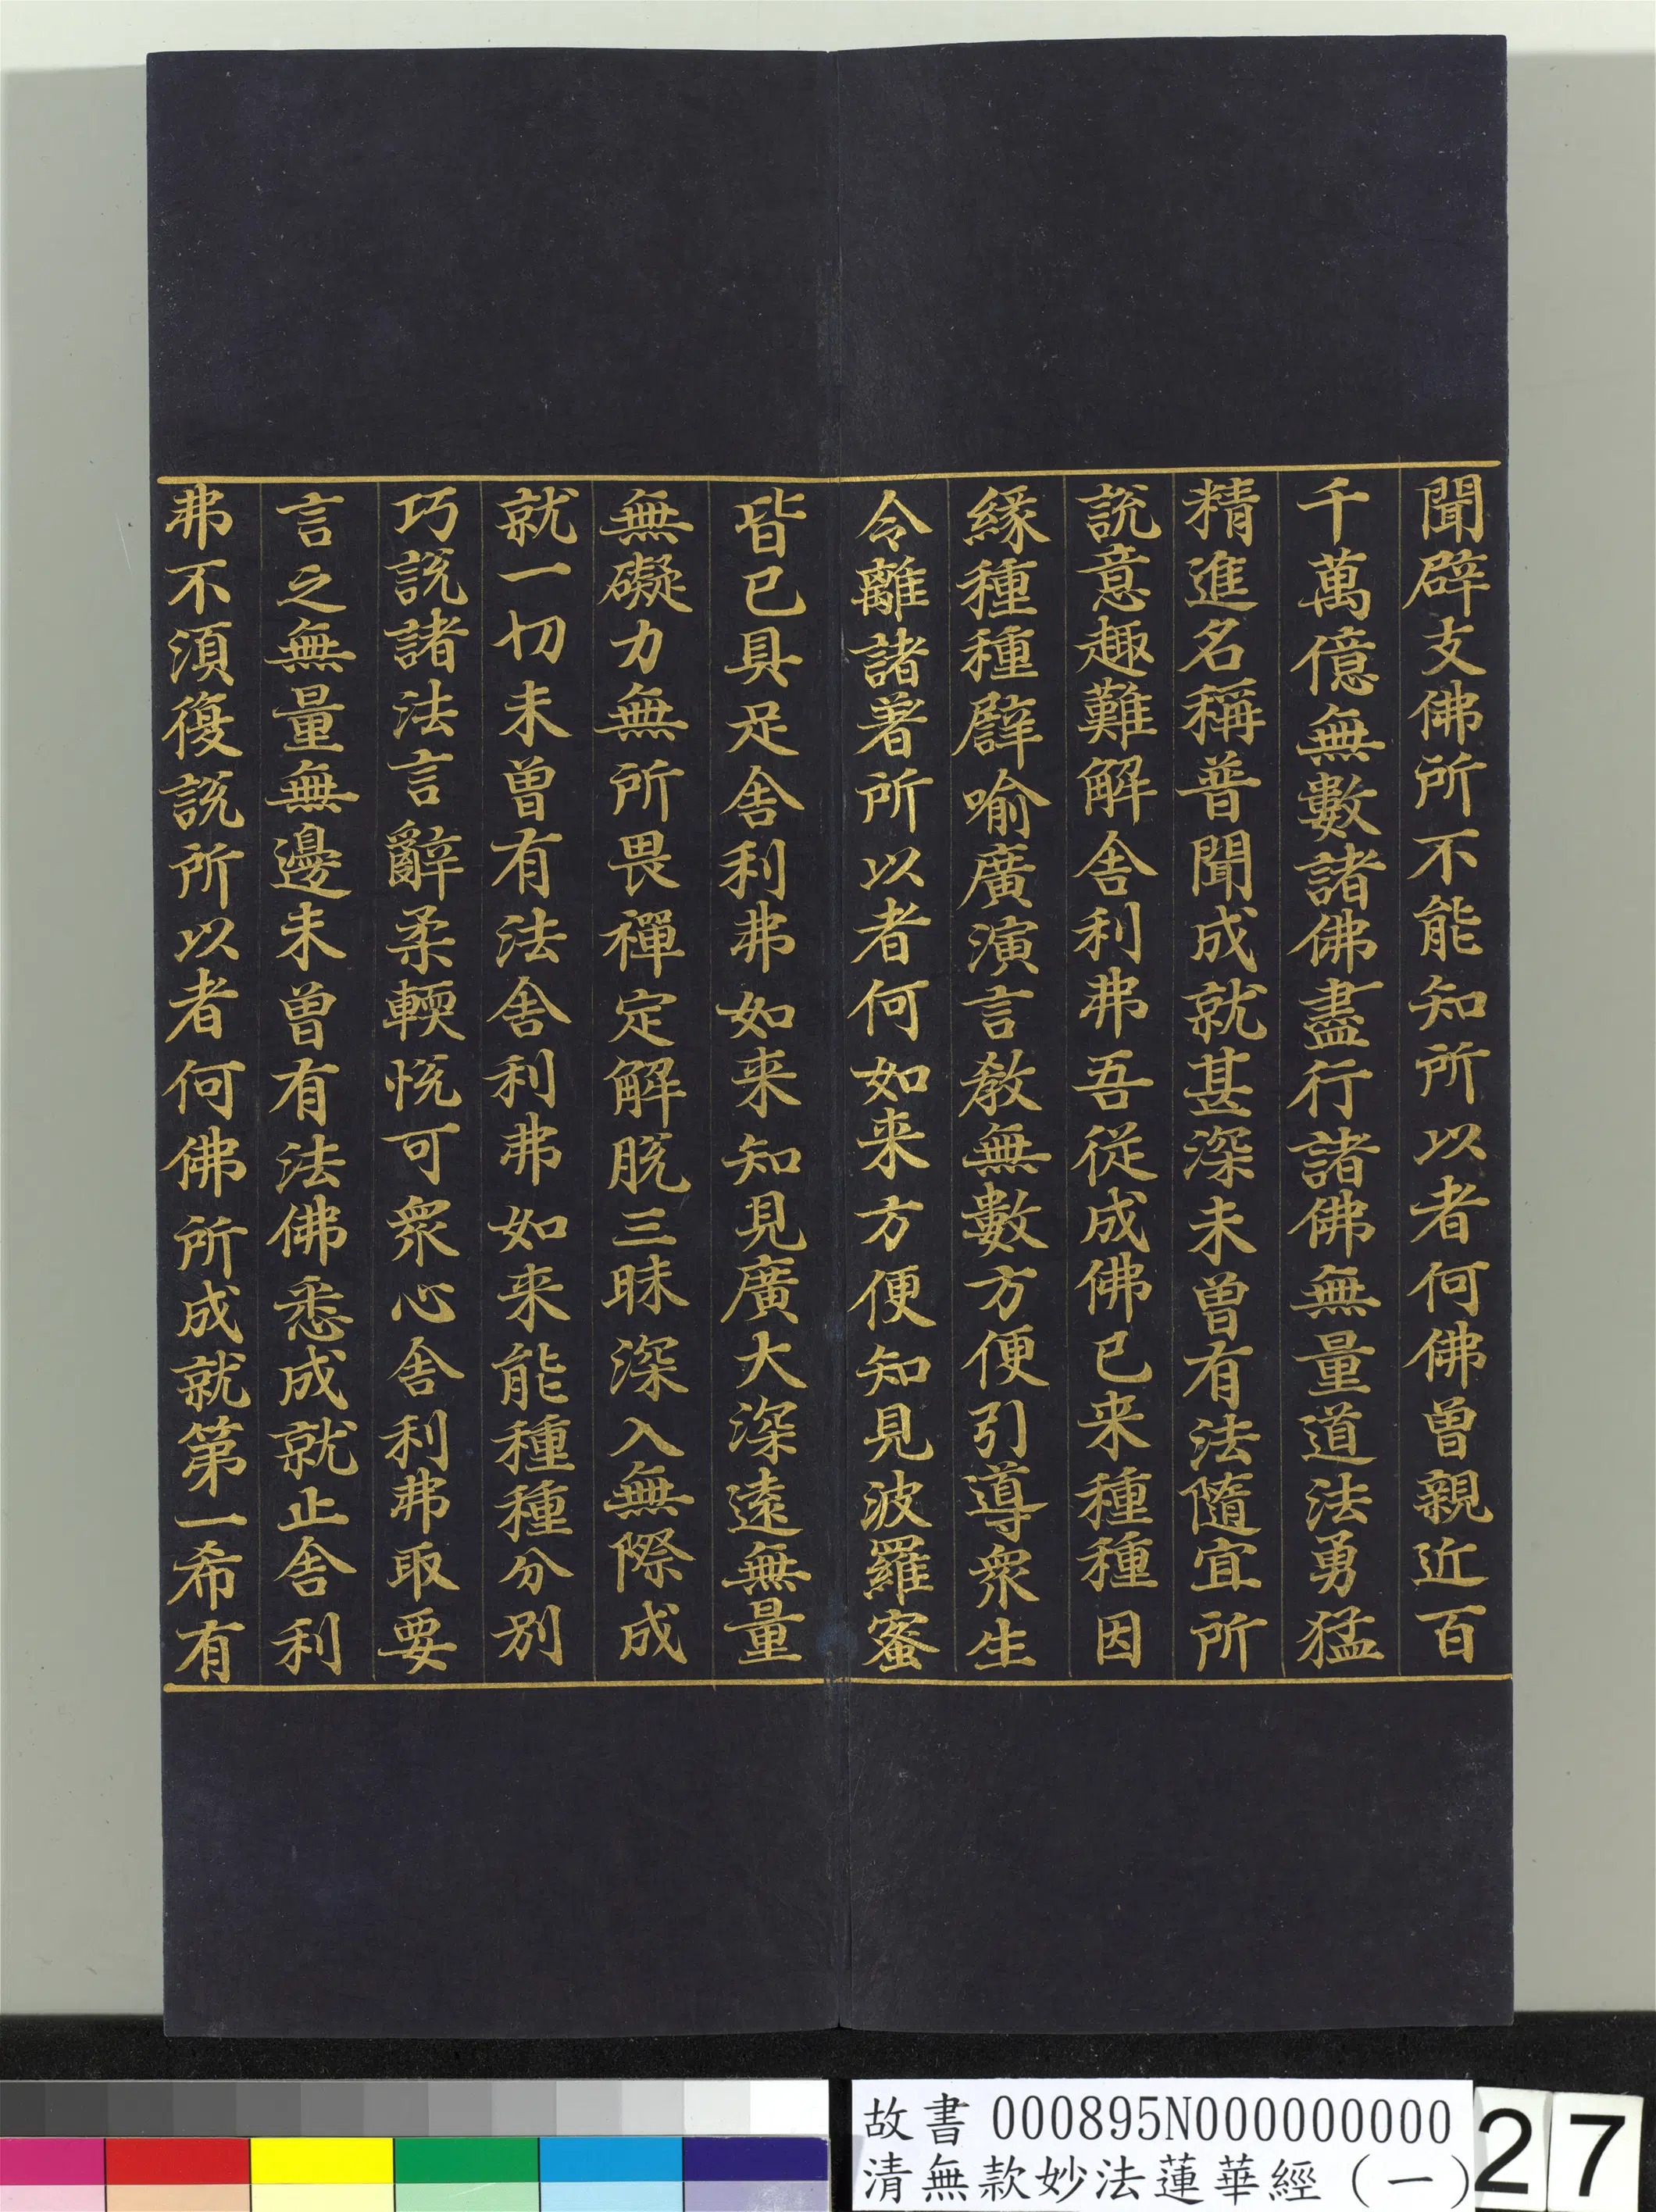 聞辟支佛所不能知所以者何佛曾親近百
千萬億無數諸佛盡行諸佛無量道法勇猛
精進名稱普聞成就甚深未曾有法隨宜所
說意趣難解舍利弗吾從成佛已来種種因
緣種種譬喻廣演言教無數方便引導衆生
令離諸著所以者何如来方便知見波羅蜜
皆已具足舍利弗如来知見廣大深遠無量
無礙力無所畏禪定解脫三昧深入無際成
就一切未曾有法舍利弗如来能種種分別
巧說諸法言辭柔輭悅可衆心舍利弗取要
言之無量無邊未曾有法佛悉成就止舍利
弗不須復說所以者何佛所成就第一希有
故書 000895N000000000
清無款妙法蓮華經（一）
27